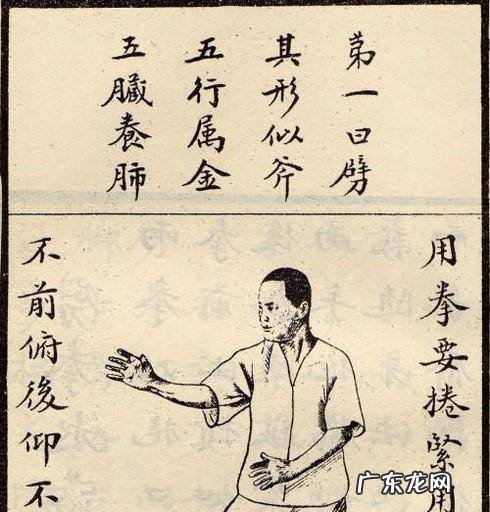 第一曰劈
其形似斧
五行属金
五臟養肺
用拳要捲緊用
不前俯後仰不
广东龙网